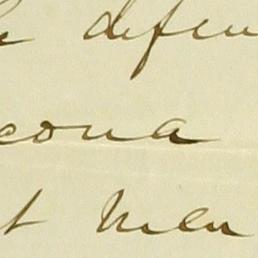 defen
cona
t men